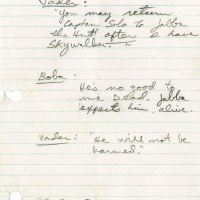 Vader:
"You may return
Captain Solo to Jabba
the Hutt after I have
Skywalker."
Boba:
He's no good to
me Dead. Jabba
expects him alive.
Vader: "He will not be
harmed."